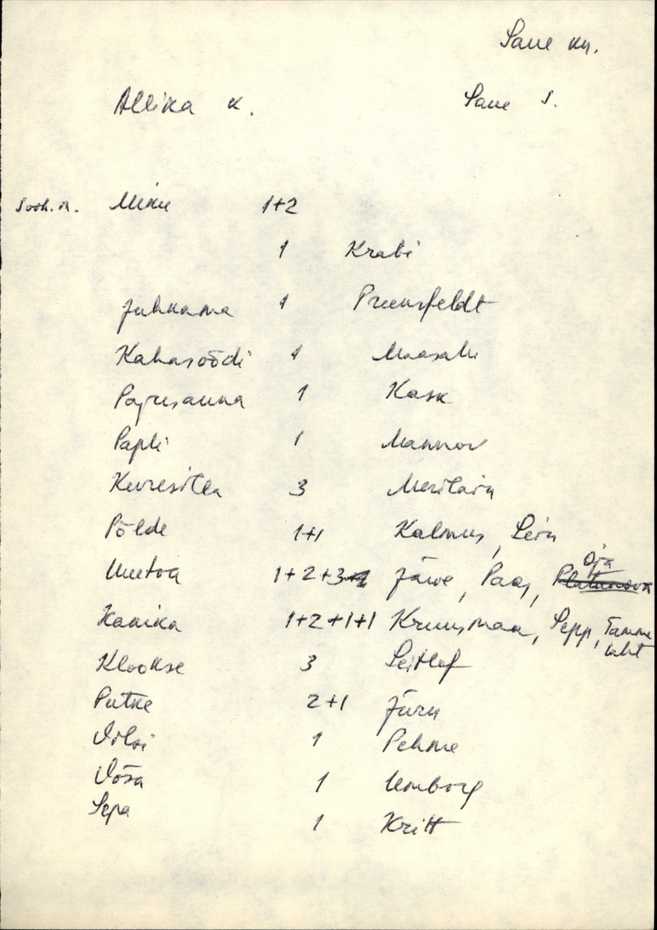 Saue kn.
Allika k. Saue s.
Miku 1+2
1 Krabi
Juhkama 1 Preensfeldt
Kahasöödi 1 Maasalu
Pajusauna 1 Kask
Papli 1 Mannov
3 Merilain
Põlde 1+1 Kalmus, Lein
Uuetoa 1+2+3 Järve, Paas, Oja
Kaasika 1+2+1+1 Kruusmaa, Sepp, Tamme
laht
Klookse 3 Seitlef
Putke 2+1 Jüru
1 Pehme
Võsa 1 Uomborg
Sepa 1 Kritt